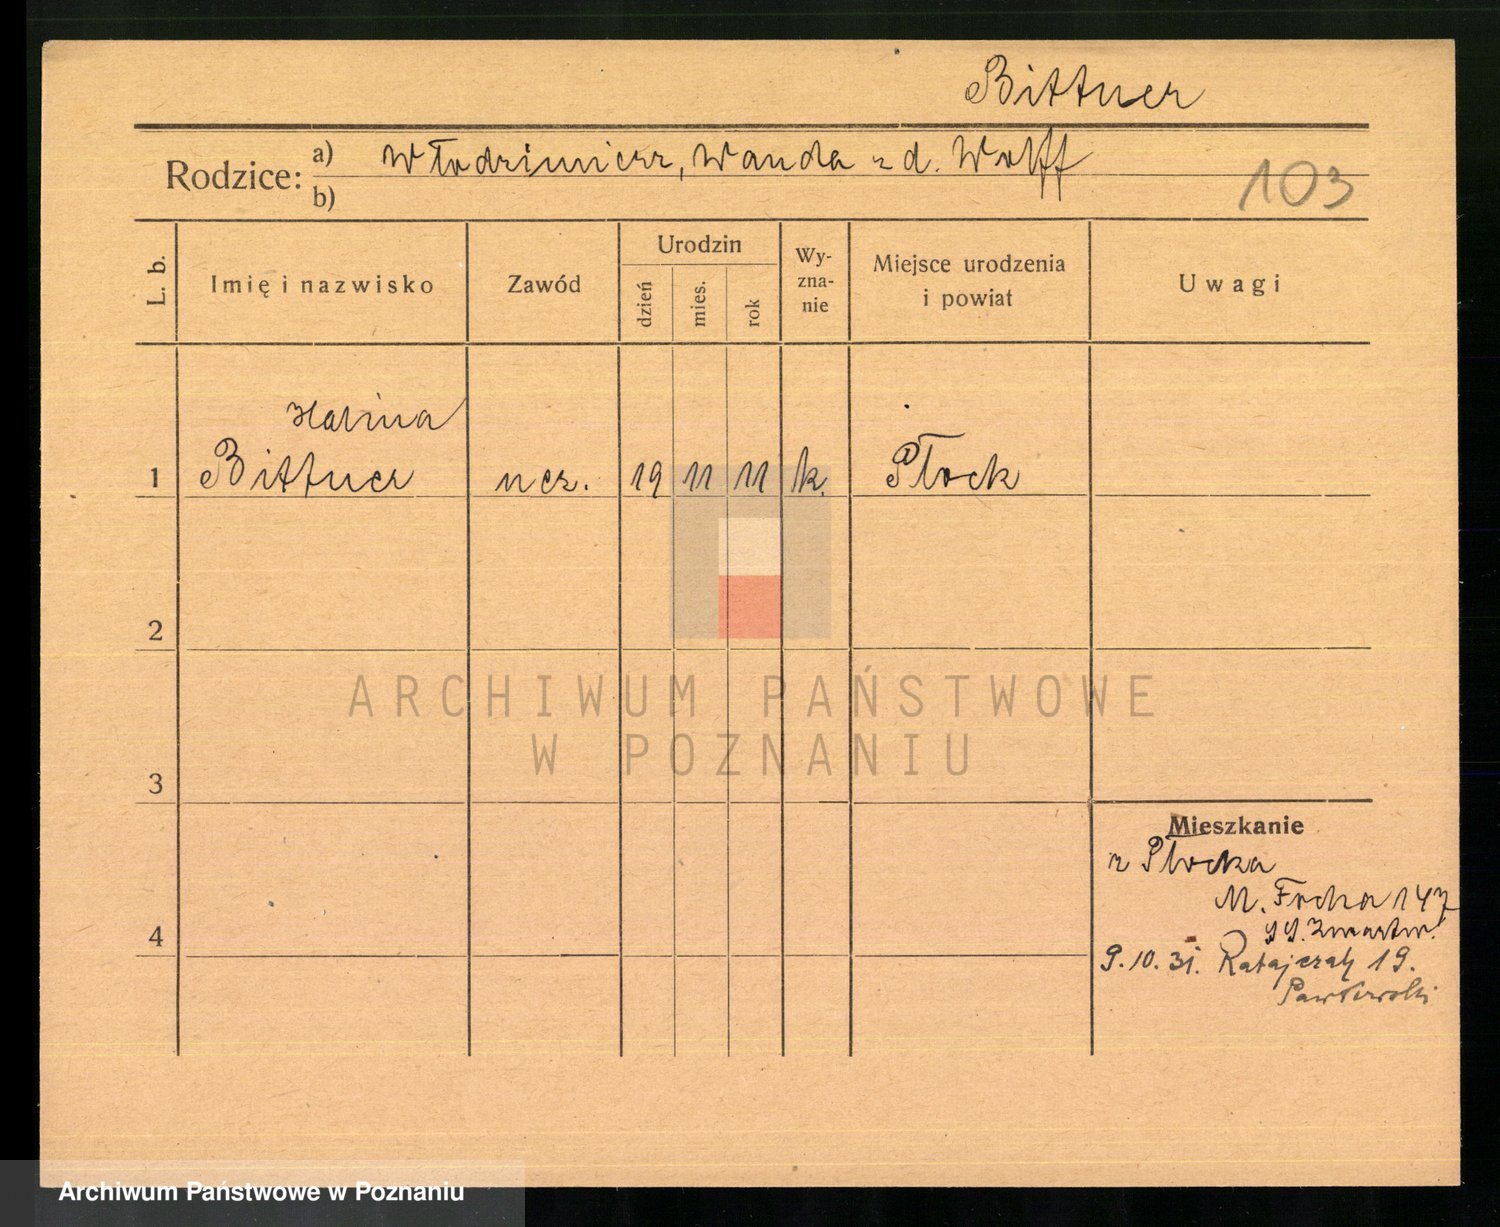 Bittner
Rodzice:
a) Włodzimierz, Wanda z d. Wolff
b)
103
L. b.
Imię i nazwisko
Zawód
Urodzin
dzień
mies.
rok
Wy-
zna-
nie
Miejsce urodzenia
i powiat
Uwagi
Halina
1 Bittner ucz. 19 11 11 k. Płock
2
3
4
ARCHIWUM PAŃSTWOWE
W POZNANIU
Mieszkanie
z Płocka
M. Focha 147
SS. Zmartw.
9.10.31. Ratajczak 19.
Archiwum Państwowe w Poznaniu